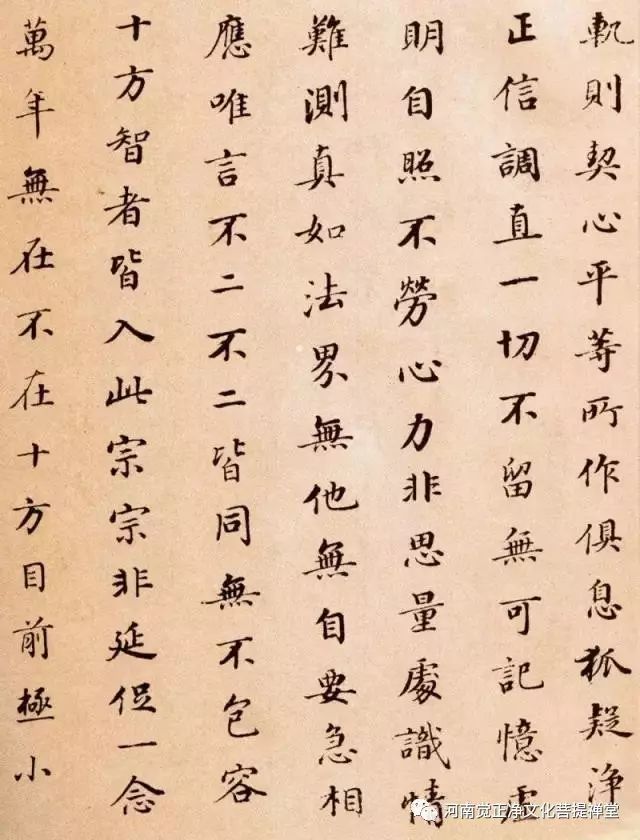 軌則契心平等所作俱息狐疑浄
正信調直一切不留無可記憶虚
明自照不勞心力非思量處識情
難測真如法界無他無自要急相
應唯言不二不二皆同無不包容
十方智者皆入此宗宗非延促一念
萬年無在不在十方目前極小
河南觉正净文化菩提禅堂